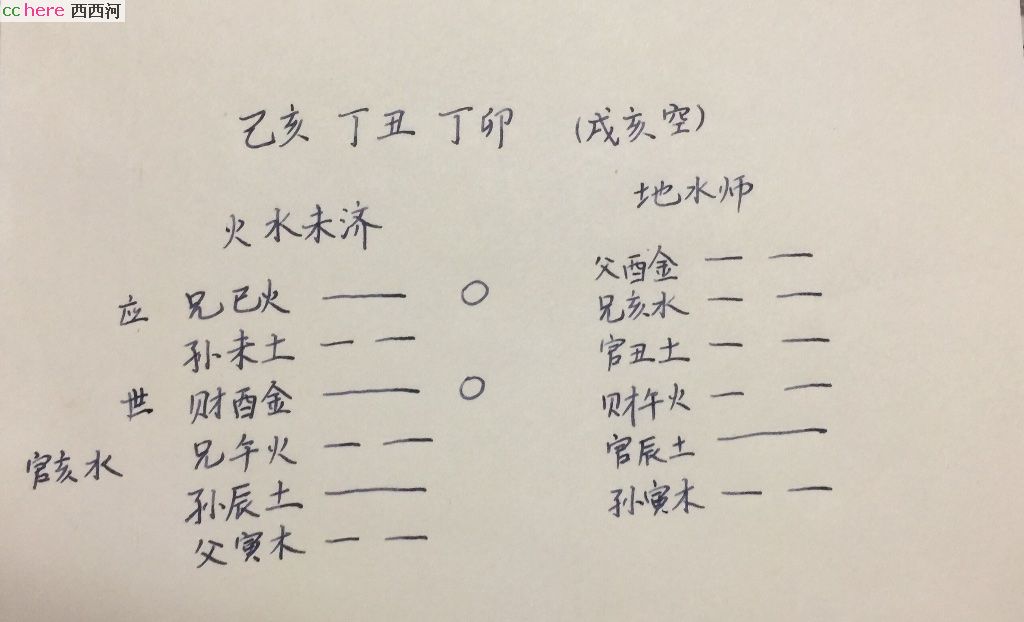 cchere 西西河
己亥 丁丑 丁卯 (戌亥空)
火水未济
应 兄巳火
孙未土
世 财酉金
兄午火
官亥水
孙辰土
父寅木
地水师
父酉金
兄亥水
官丑土
财午火
官辰土
孙寅木